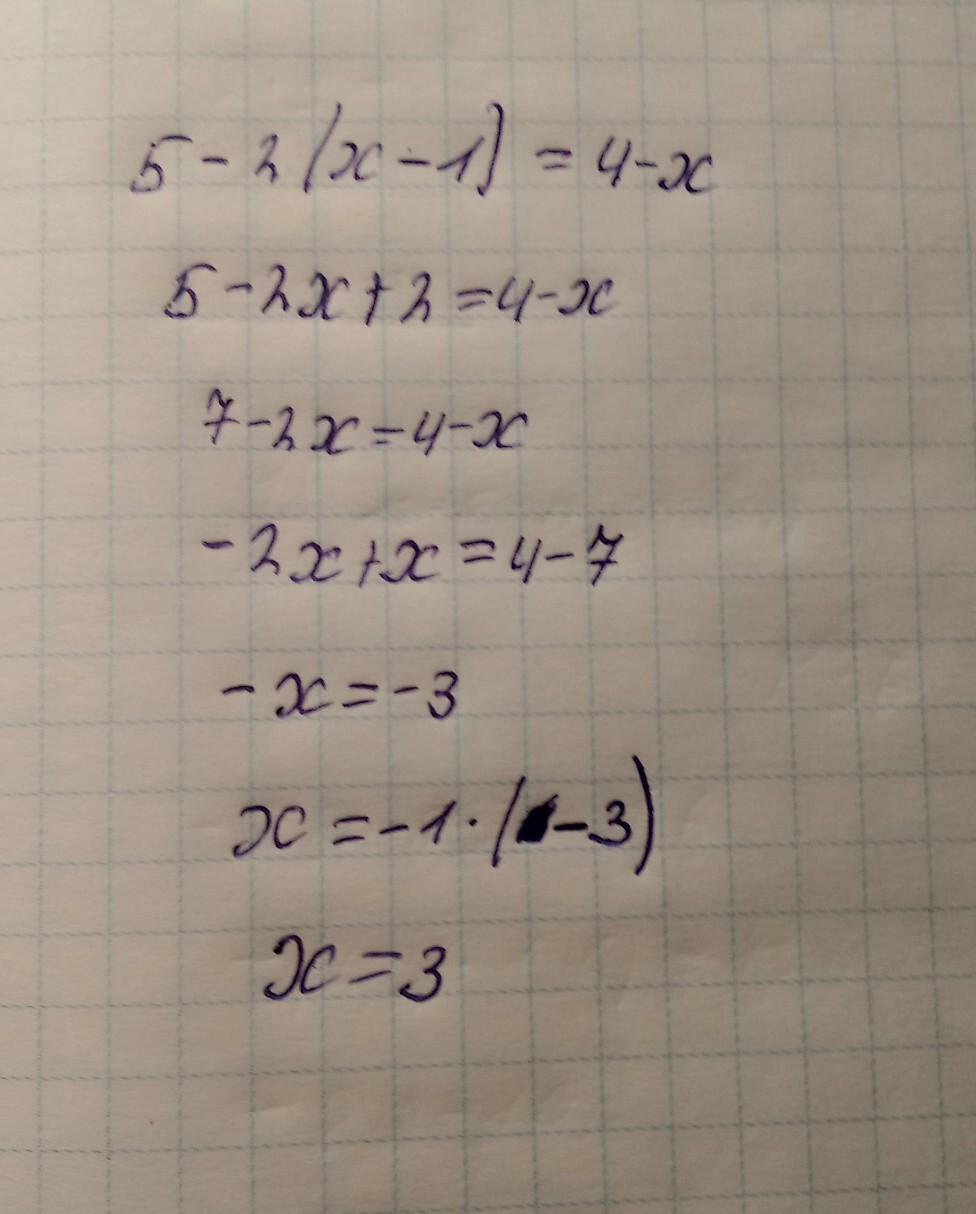 5 - 2(x - 1) = 4 - x
5 - 2x + 2 = 4 - x
7 - 2x = 4 - x
- 2x + x = 4 - 7
- x = -3
x = -1 · (-3)
x = 3